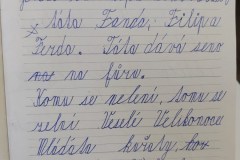 táta Fanda, Filip a
Ferda. Táta dává seno
na fůru.
Komu se nelení, tomu se
zelní. Veselé Velikonoce
Mláďata kuřáty,